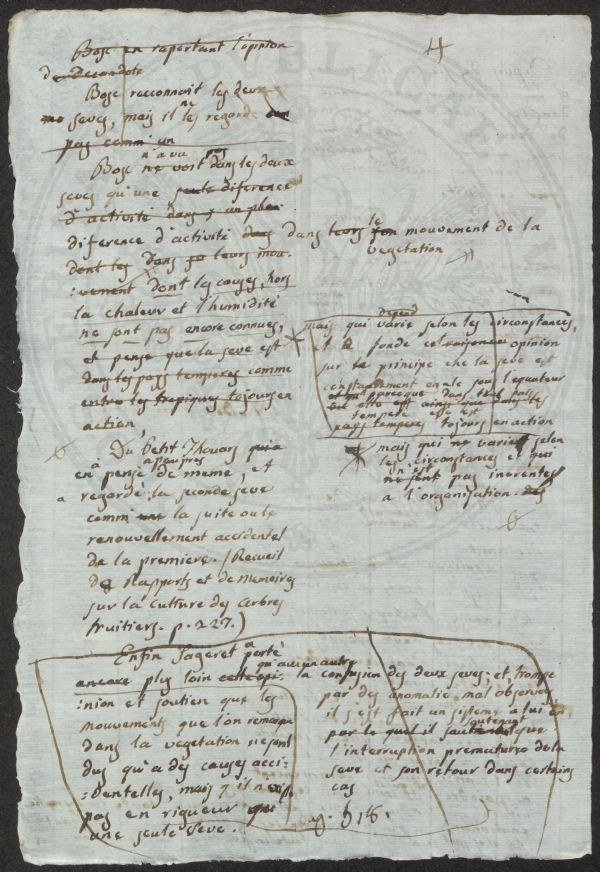 4
Bosc en raportant l'opinion
de Decandole
Bosc reconnoit les deux
seves, mais il ne les regarde
pas comm un
Bosc n'a vu ne voit pas dans les deux
seves qu'une seule diference
d'activité dans un plus
diference d'activité dans leurs le mouvement de la
vegetation
dont les dans leurs mou-
:vement dont les causes, hors
la chaleur et l'humidité
ne sont pas encore connues,
et pense que la seve est
dans les pays temperes comme
entre les tropiques tojours en
action,
depend
mais qui varie selon les circonstances,
et fonde cet opinion
sur le principe che la seve est
constamment en
tempere
pays temperes tojours en action
mais qui ne varie selon
les circonstances et qui
n'est
ne sont pas inerentes
a l'organisation.
Du Petit Thouars
en a pensé a peu pres de meme, et
a regardé la seconde seve
comm la suite ou le
renouvellement accidentel
de la premiere. (Recueil
de Rapports et de Memoires
sur la culture des Arbres
fruitiers. p. 227.)
Enfin Sageret a porté
encore plus loin cette opi- qu'aucun autre
:nion et soutien que les
mouvements que l'on remarque
dans la vegetation ne sont
dus qu'a des causes acci-
:dentelles, mais
pas en rigueur
une seule seve.
la confusion des deux seves; et trompé
par des anomalie mal observées
il s'est fait un sisteme a lui
par le quel il soutenant que
l'interruption prematuree de la
seve et son retour dans certains
cas